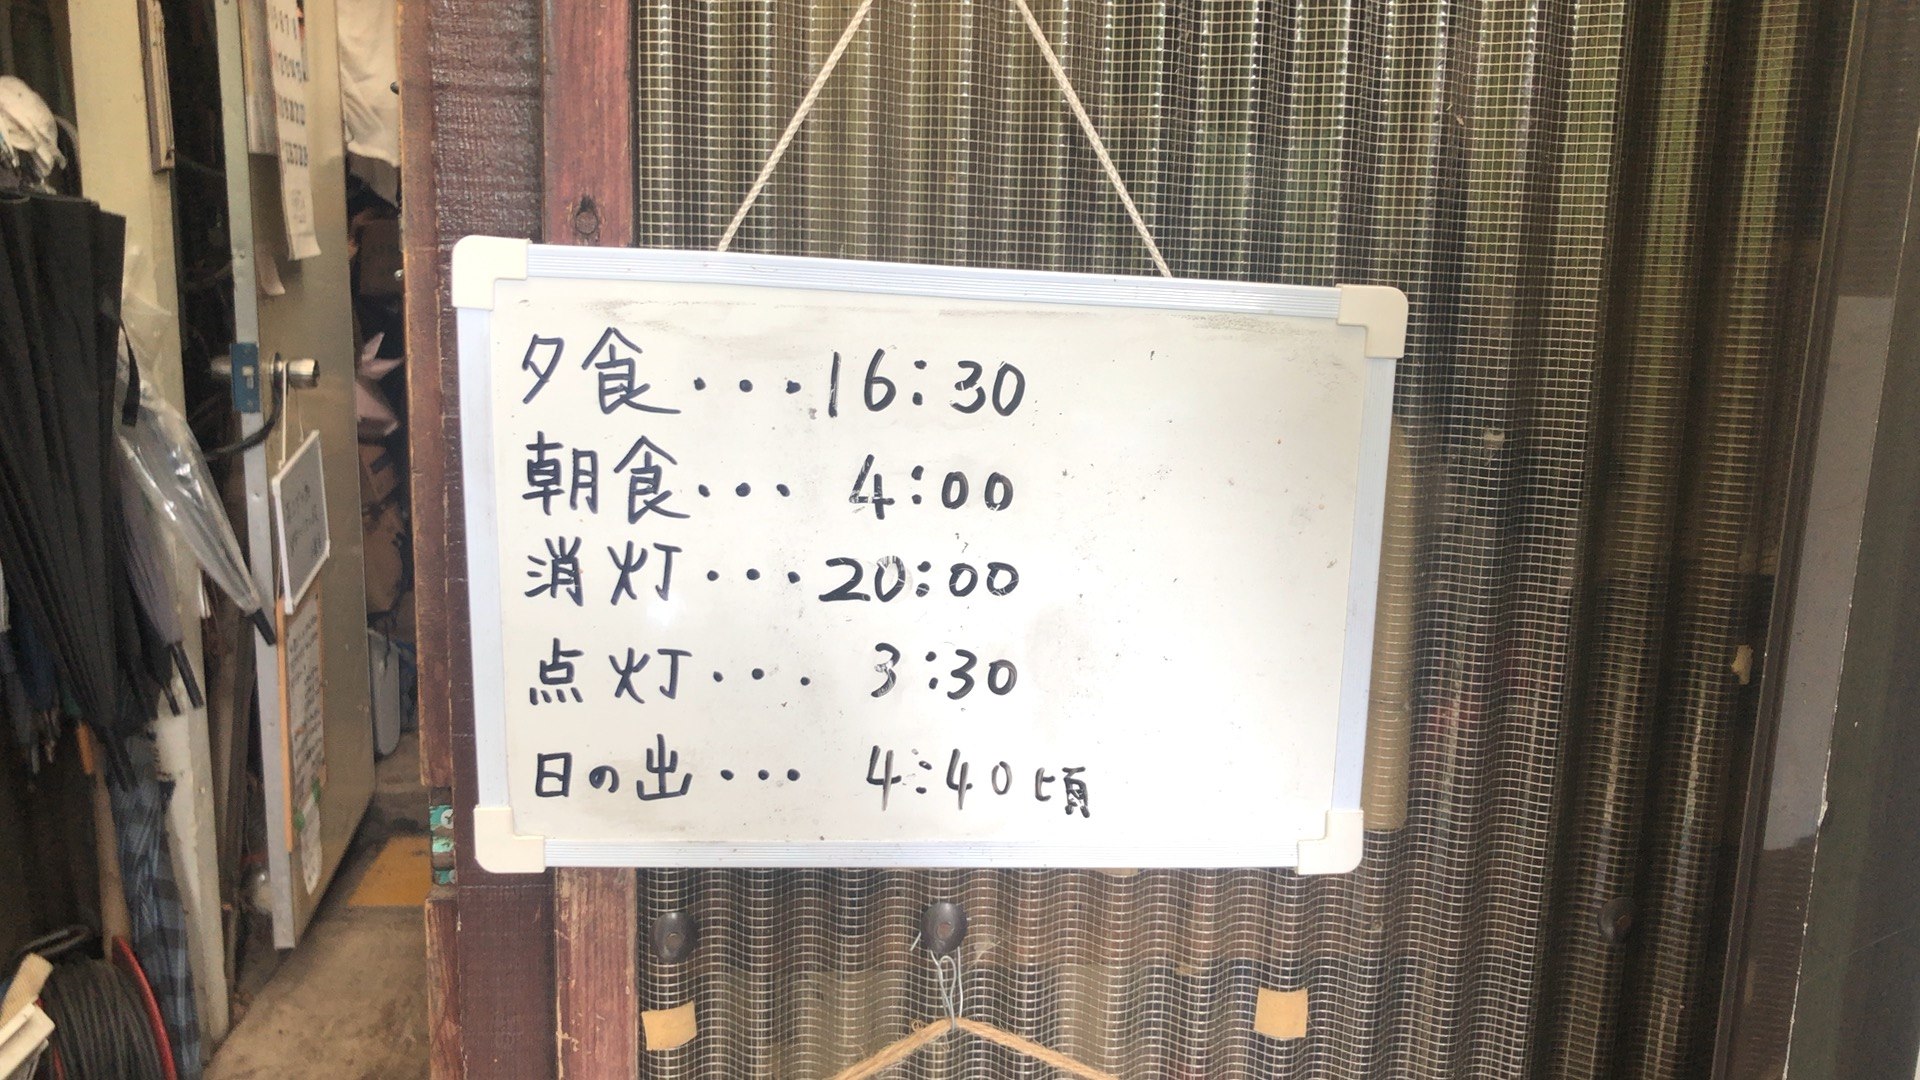 夕食・・・16:30
朝食・・・ 4:00
消灯・・・20:00
点灯・・・ 3:30
日の出・・・ 4:40頃